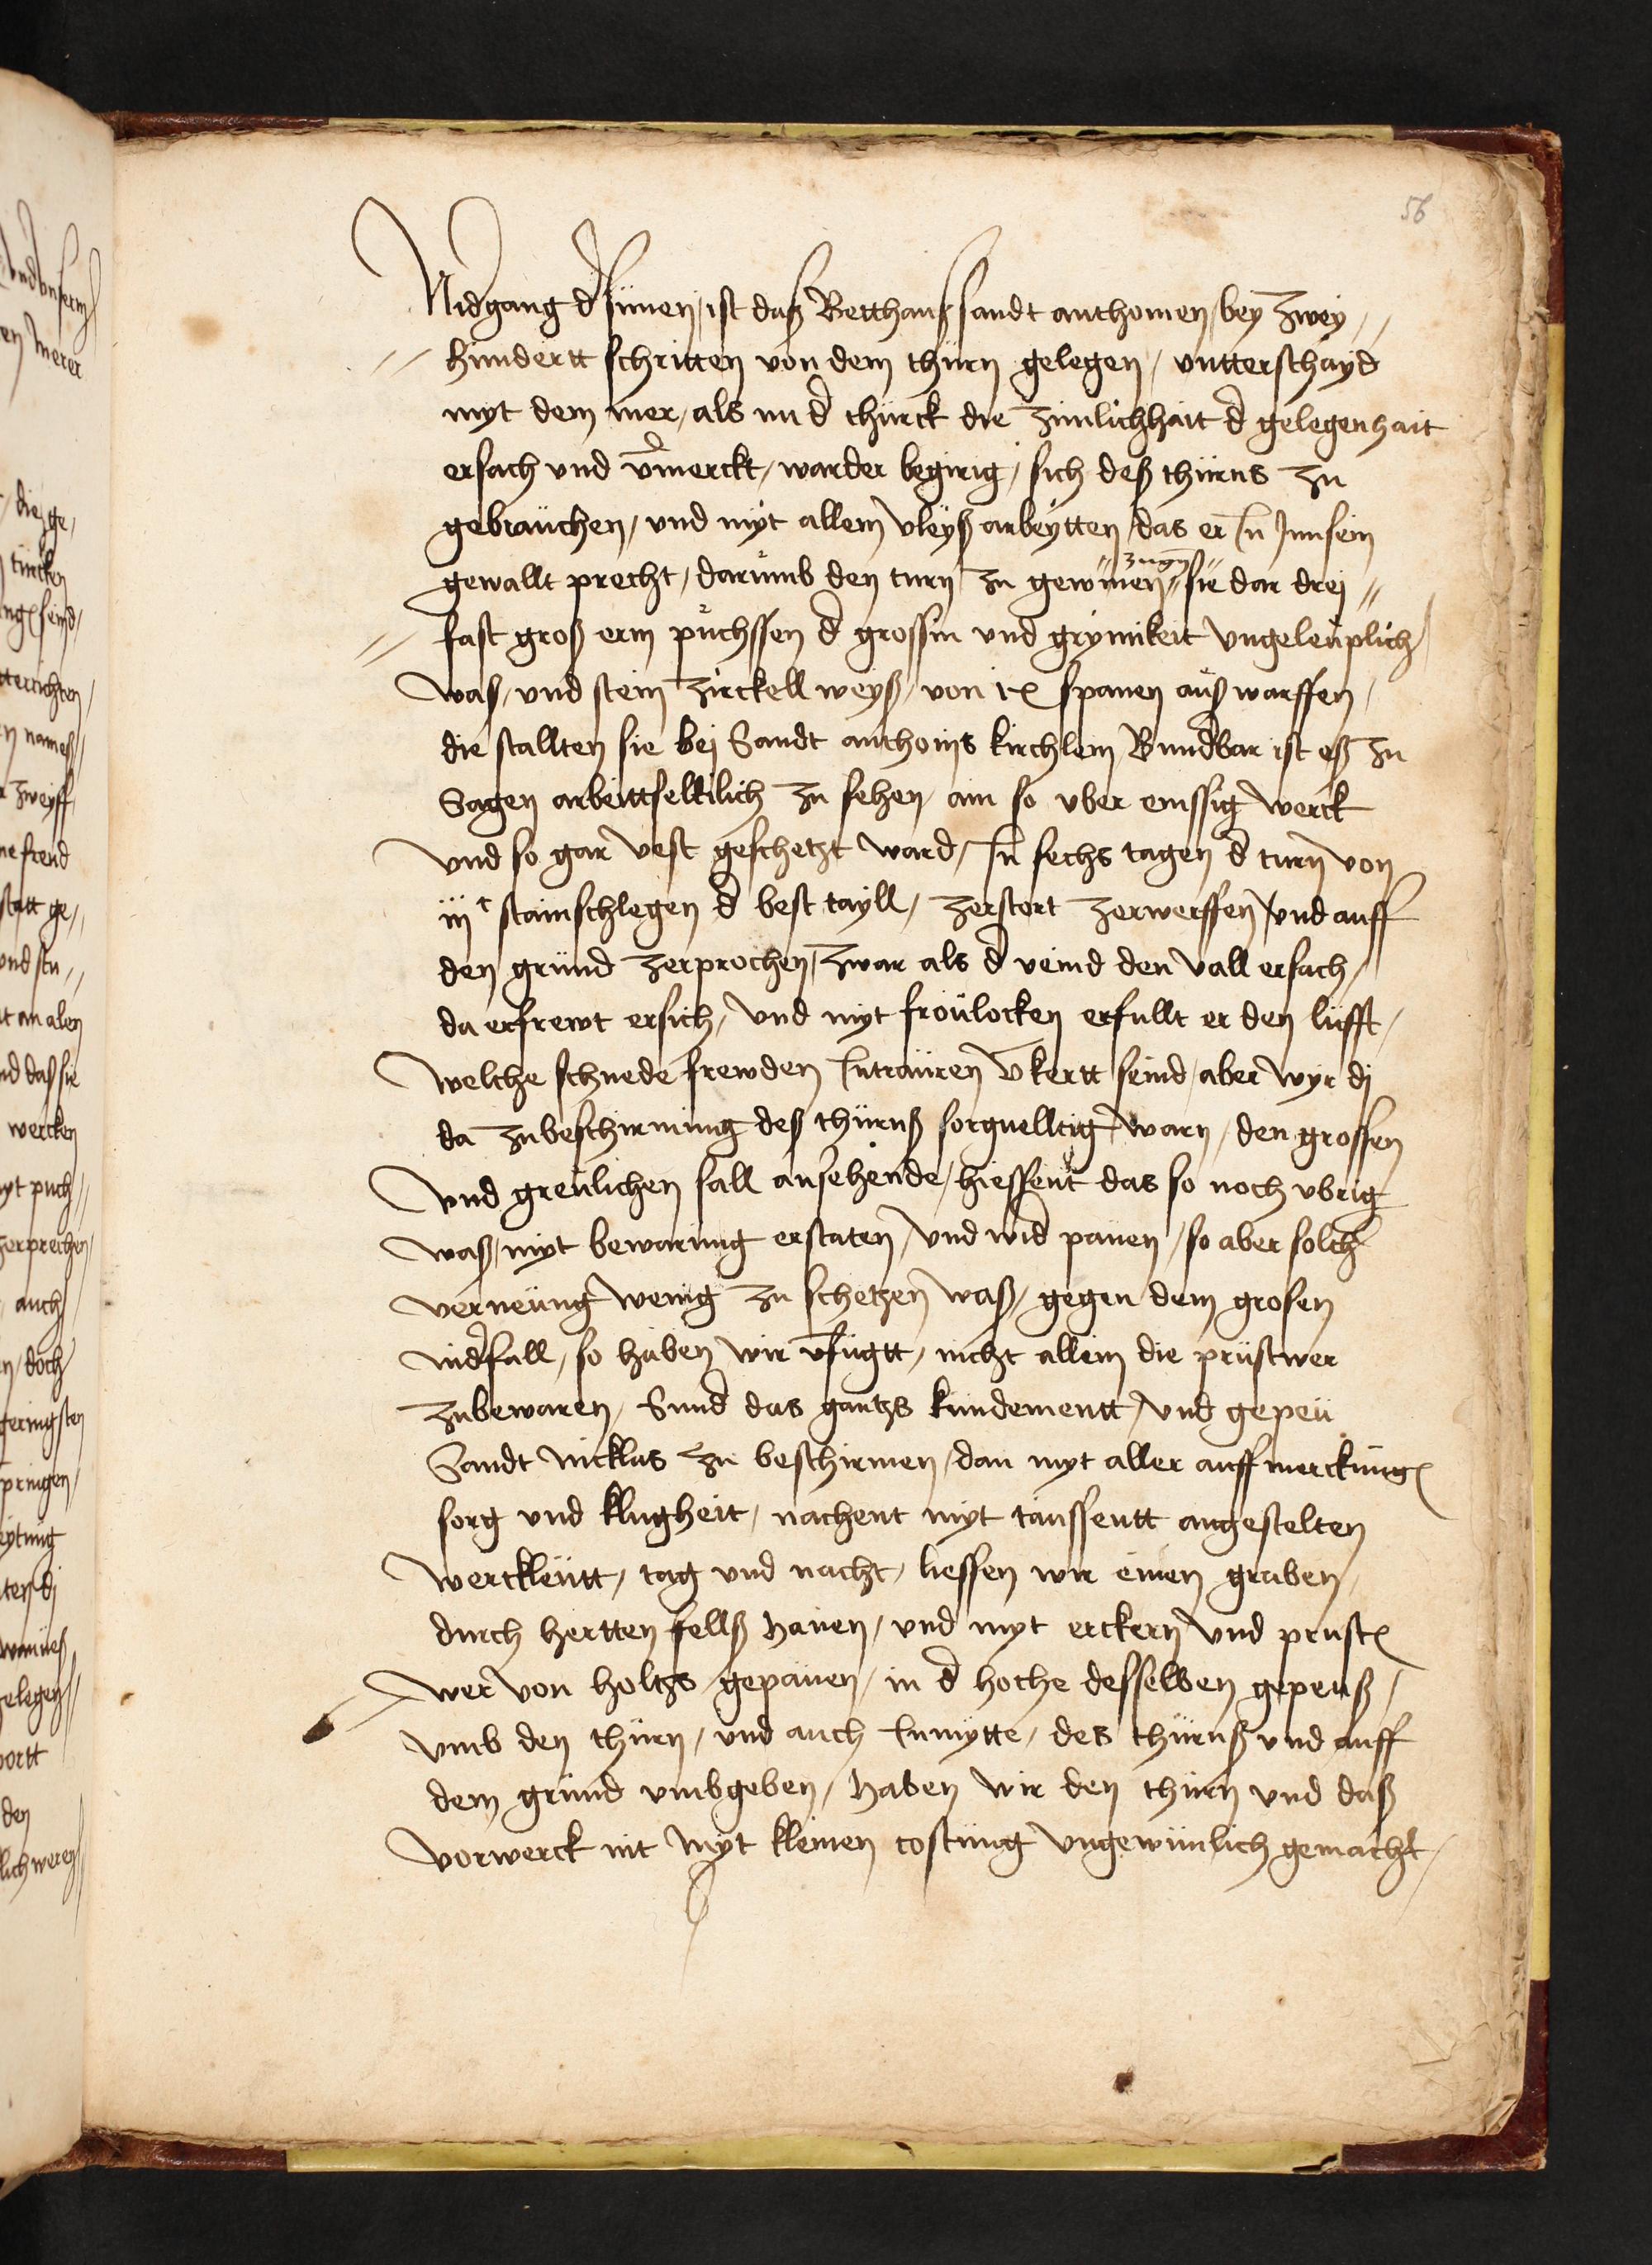 56
Nidgang d sunen / ist daß Betthauß sandt anthonien / bey zwey //
// hundertt schritten von dem thurn gelegen / vntterschayd
myt dem mer / als nu d thurck die zimlichhait d gelegenhait
ersach vnd v̄merckt / warder begirig / sich deß thurns zu
gebrauchen / vnd myt allem vleyß arbeytten / das er In Inn sein
gewallt precht / darumb den turn zu gewinen // zugn // sie dar drej //
// fast groß erin puchssen d grossin vnd grymikeit vngelauplich
waß / vnd stein zirckell weyß / von ix spanen auß warffen /
die stallten sie bej Sandt anthonis kirchlein Bundbar ist eß zu
Sagen arbeittselltilich zu sehen / ain so vber einssig werck
vnd so gar vest geschetzt ward / In sechs tagen d turn von
iij c stainschlegen d best tayll / zerstort zerwerffen / vnd auff
den grund zerprochen / zwar als d veind den vall ersach /
da erfrewt ersich / vnd myt froulocken erfullt er den lufft /
welche schnede frewden In trauren v̄kertt seind / aber wyr dj
da zubeschirming deß thurnß sorguelltig warn / den grossen
vnd greulichen fall ansehende / hiessent das so noch vbrig
waß / myt bewarung erstaten / vnd wid pauen / so aber solch
verneung wenig zu schetzen waß / gegen dem grosen
nidfall / so haben wir v̄fugtt / nicht allein die prustwer
zubewaren / Sund das gantzs kundementt / vnd gepeu
Sandt nicklas zu beschirmen / dan myt aller auffmerckung
sorg vnd klugheit / nachent myt taussentt angestelten
werckleutt / tag vnd nacht / liessen wir einen graben /
durch hertten fellß hauen / vnd myt erckern vnd prust
wer von holtzs gepauen / in d hoche desselben gepeuß /
vmb den thurn / vnd auch In mytte / des thurnß vnd auff
dem grund vmbgeben / haben wir den thurn vnd daß
vorwerck nit myt kleinen costung vngewinlich gemacht /